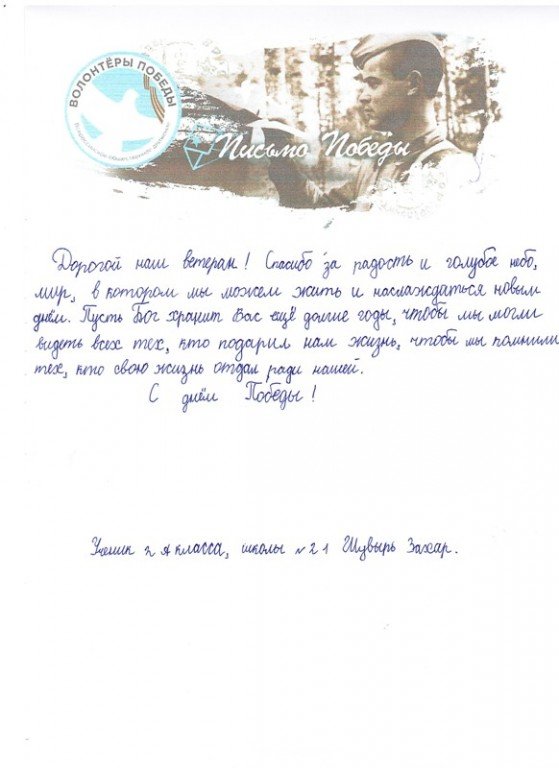 ВОЛОНТЁРЫ ПОБЕДЫ
Письмо Победы
Дорогой наш ветеран! Спасибо за радость и голубое небо,
мир, в котором мы можем жить и наслаждаться новым
днём. Пусть Бог хранит Вас ещё долгие годы, чтобы мы могли
видеть всех тех, кто подарил нам жизнь, чтобы мы помнили
тех, кто свою жизнь отдал ради нашей.
С днём Победы!
Ученик 2 А класса, школы №21 Шувырь Захар.